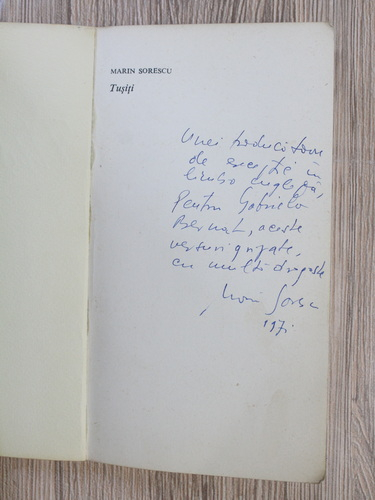 MARIN SORESCU
Tușiți
Unei traducătoare
de excepție în
limba engleză,
Pentru Gabriela
Bernat, aceste
versuri gripate,
cu multă dragoste
Marin Sorescu
1971